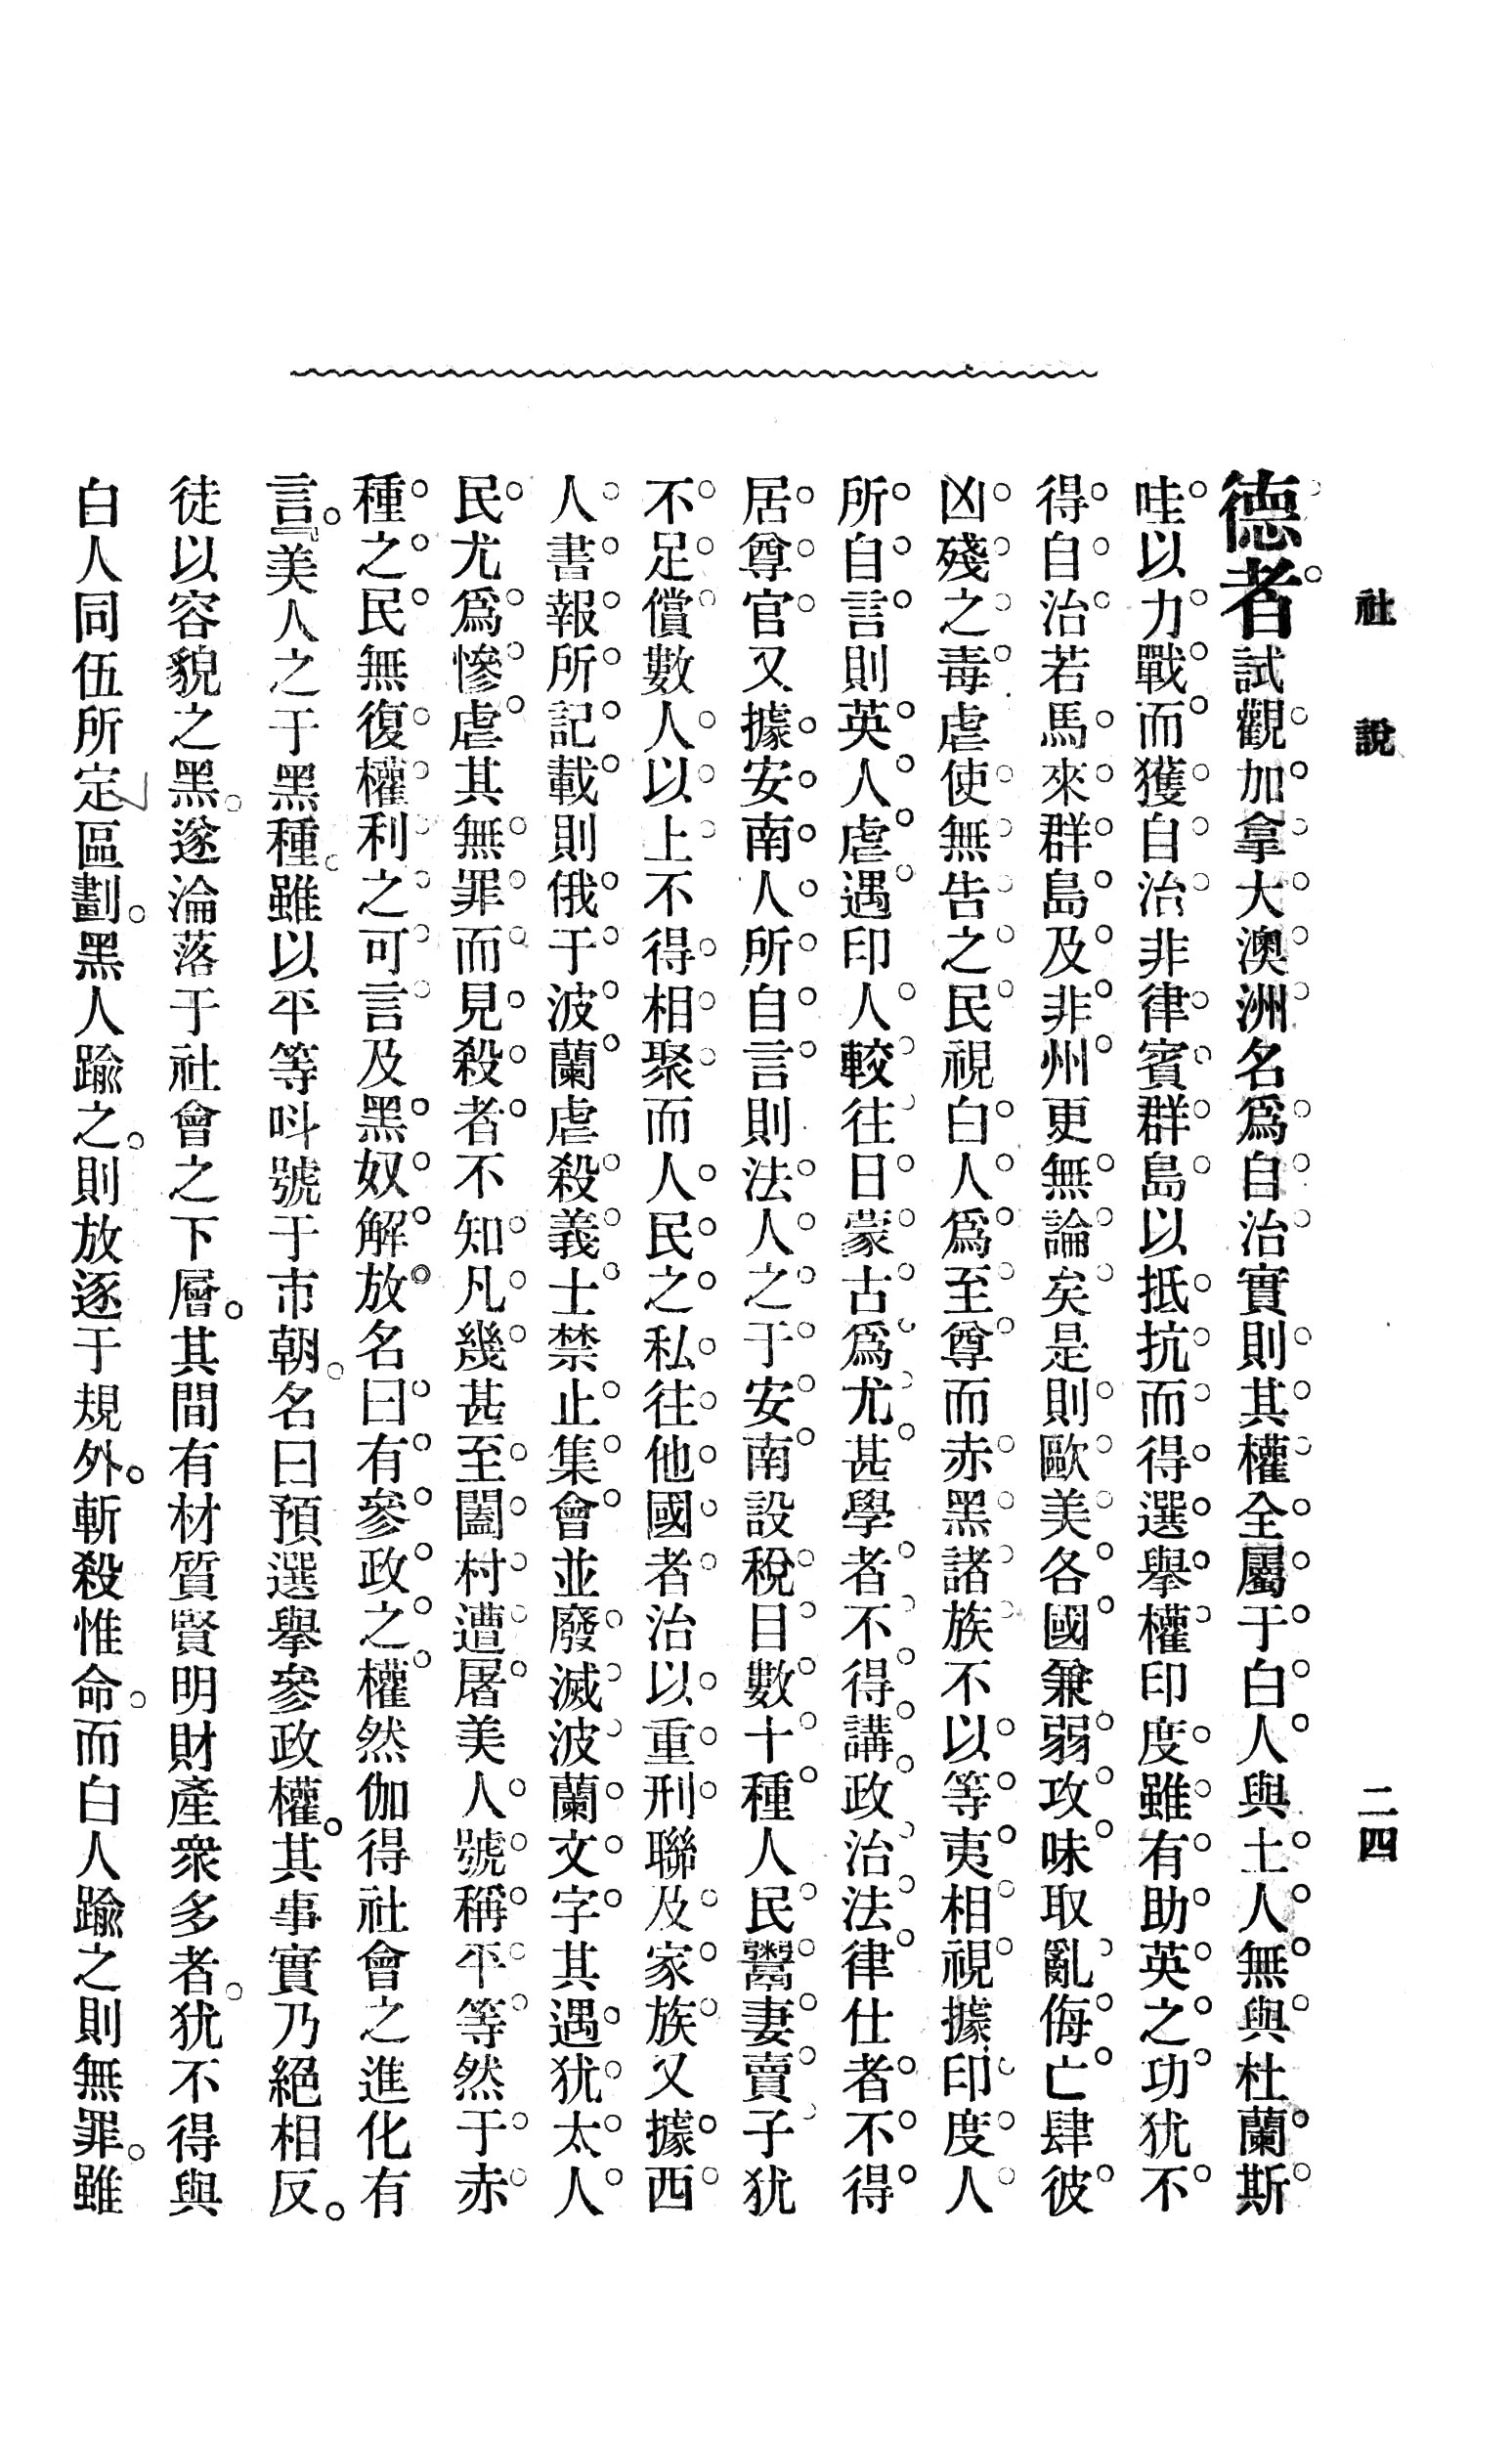 社說
二四
德者試觀加拿大澳洲名爲自治實則其權全屬于白人與土人無與杜蘭斯
哇以力戰而獲自治非律賓群島以抵抗而得選擧權印度雖有助英之功犹不
得自治若馬來群島及非州更無論矣是則歐美各國兼弱攻昧取亂侮亡肆彼
凶殘之毒虐使無告之民視白人爲至尊而赤黑諸族不以等夷相視據印度人
所自言則英人虐遇印人較往日蒙古爲尤甚學者不得講政治法律仕者不得
居尊官又據安南人所自言則法人之于安南設稅目數十種人民鬻妻賣子犹
不足償數人以上不得相聚而人民之私往他國者治以重刑聯及家族又據西
人書報所記載則俄于波蘭虐殺義士禁止集會並廢滅波蘭文字其遇犹太人
民尤爲慘虐其無罪而見殺者不知凡幾甚至闔村遭屠美人號稱平等然于赤
種之民無復權利之可言及黑奴解放名曰有參政之權然伽得社會之進化有
言。「美人之于黑種。雖以平等呌號于市朝。名曰預選擧參政權。其事實乃絕相反。
徒以容貌之黑。遂淪落于社會之下層。其間有材質賢明財產衆多者。犹不得與
白人同伍所定區劃。黑人踰之。則放逐于規外。斬殺惟命。而白人踰之則無罪。雖